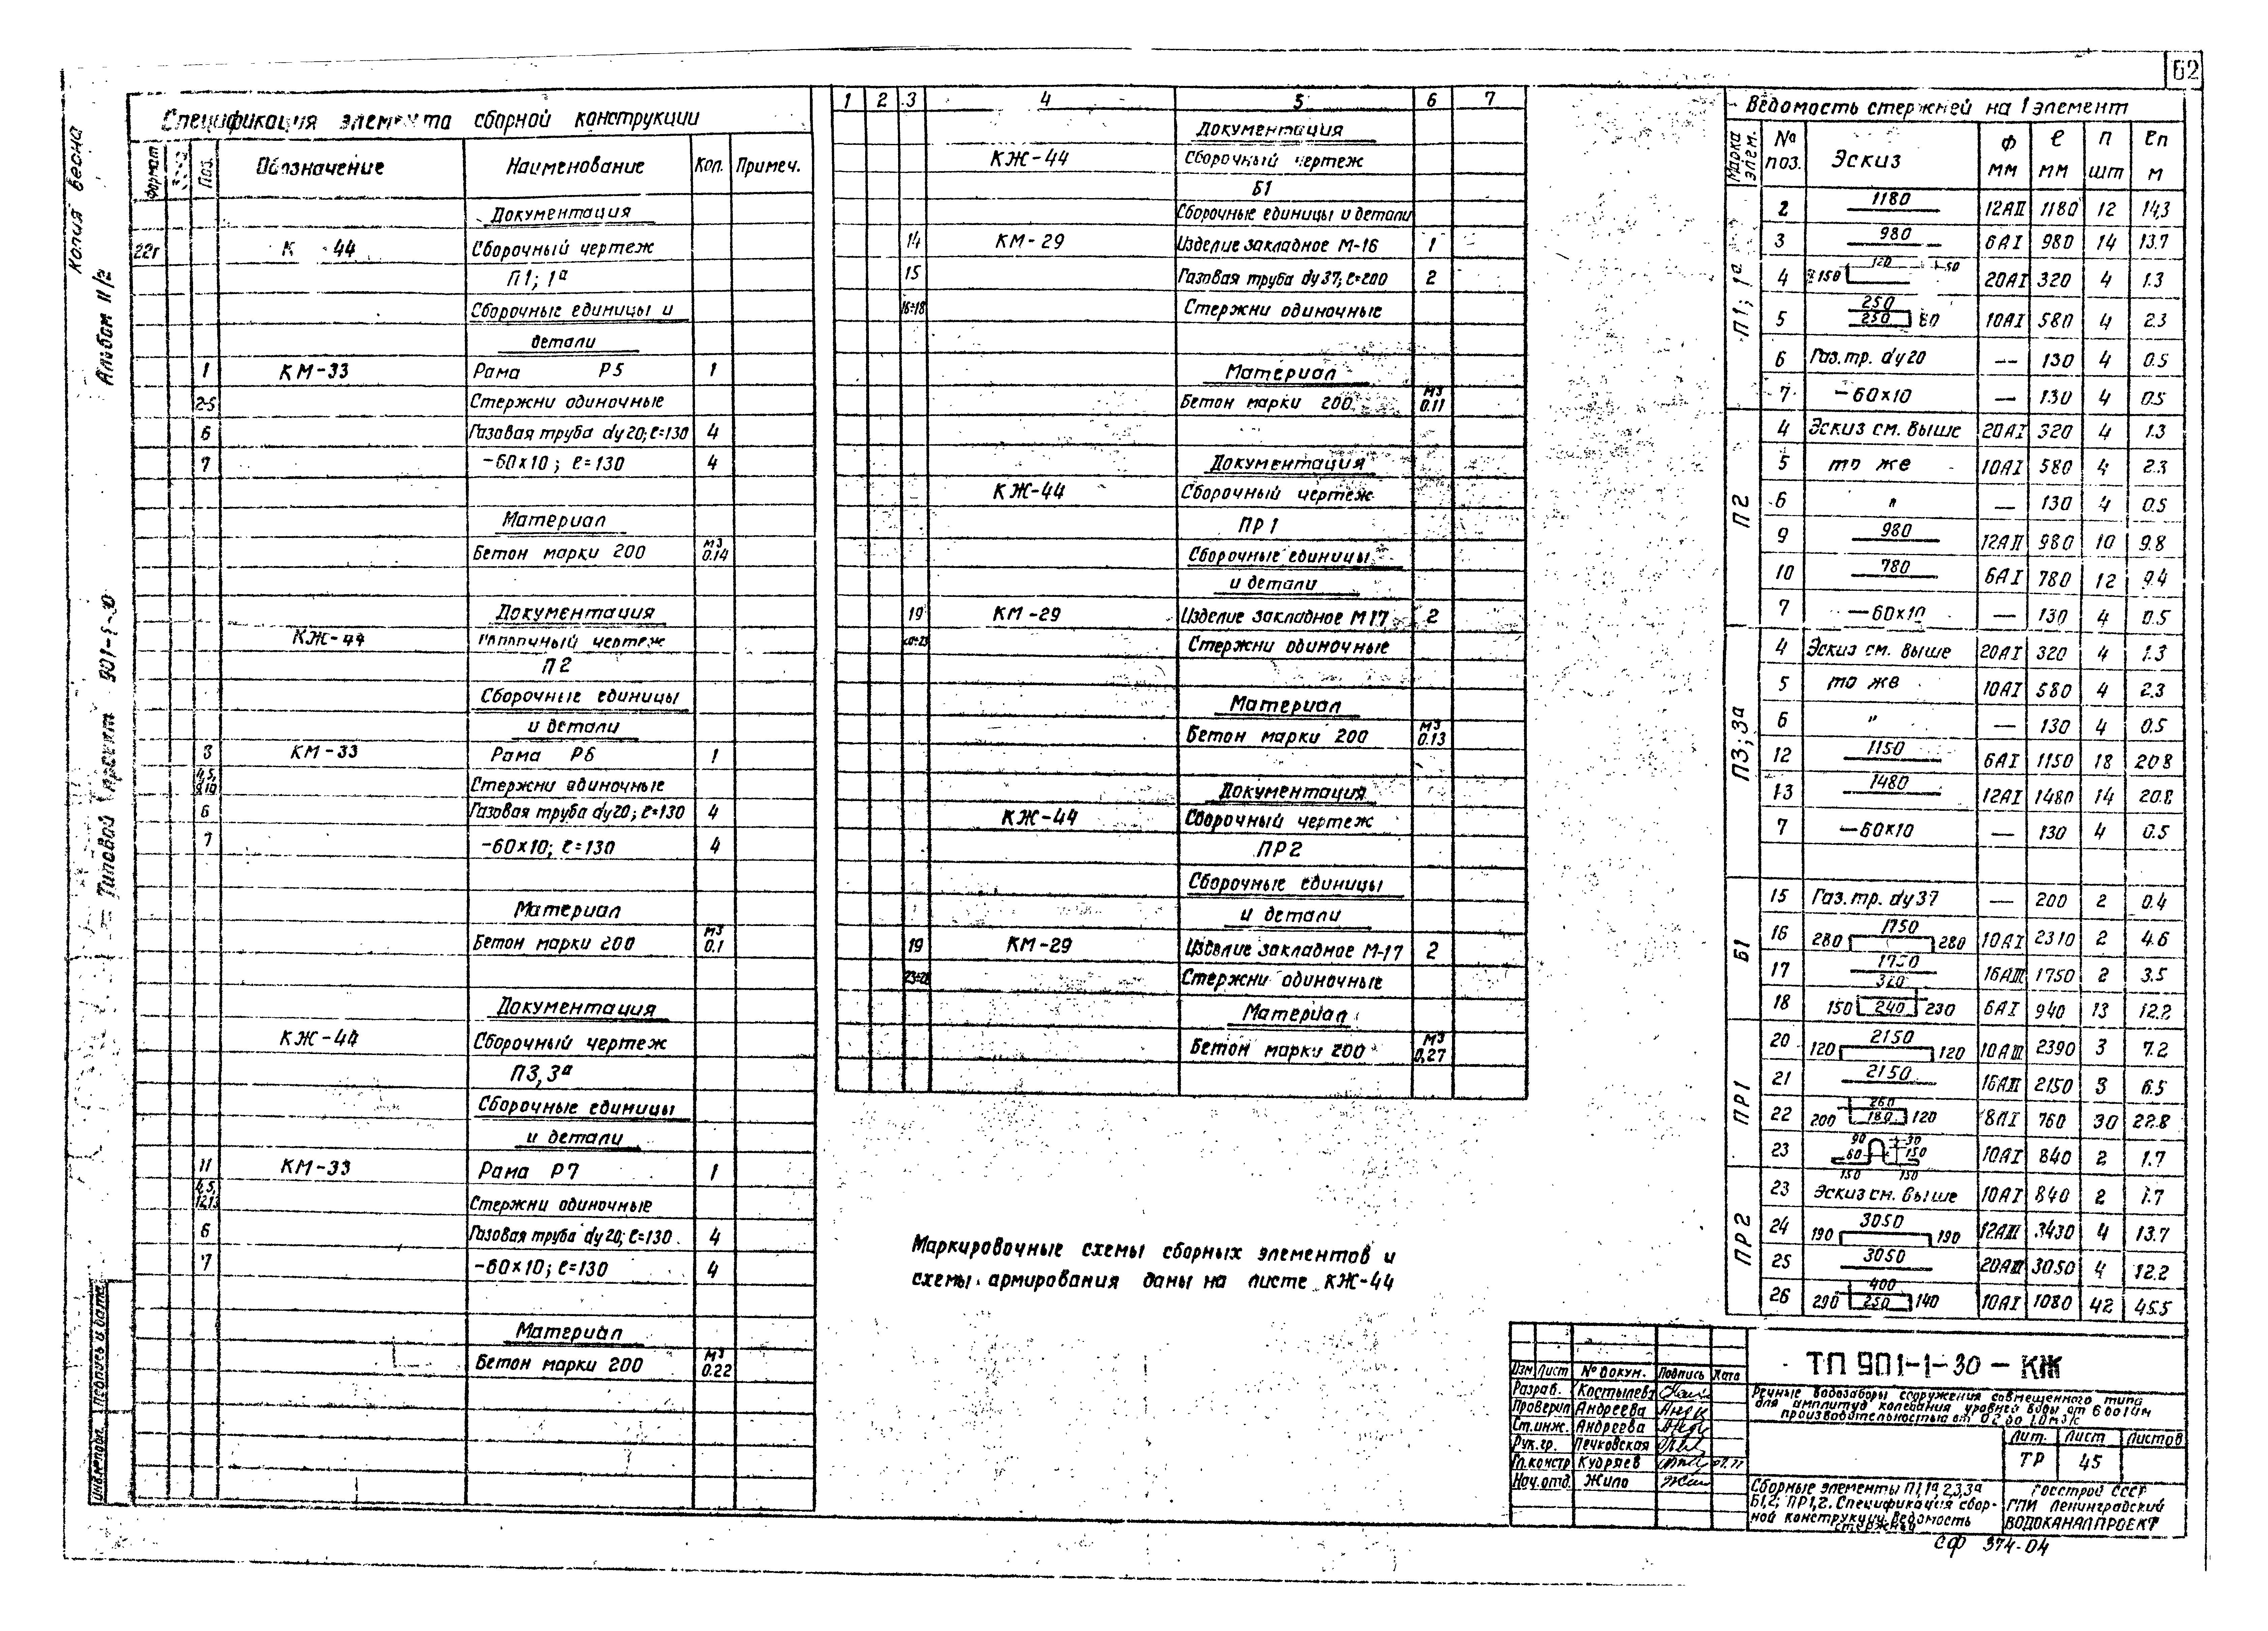 62
Копия весна
Альбом II/2
Типовой проект 901-1-30
Инв.№подл. Подпись и дата
Спецификация элемента сборной конструкции
Формат Поз. Обозначение Наименование Кол. Примеч.
Документация
22г К -44 Сборочный чертеж
П1; 1а
Сборочные единицы и
детали
1 КМ-33 Рама Р5 1
2-5 Стержни одиночные
6 Газовая труба dy20; ℓ=130 4
7 -60×10; ℓ=130 4
Материал
Бетон марки 200 м3 0.14
Документация
КЖ-44 чертеж
П2
Сборочные единицы
и детали
8 КМ-33 Рама Р6 1
4,5, 9,10 Стержни одиночные
6 Газовая труба dy20; ℓ=130 4
7 -60×10; ℓ=130 4
Материал
Бетон марки 200 м3 0.1
Документация
КЖ-44 Сборочный чертеж
П3,3а
Сборочные единицы
и детали
11 КМ-33 Рама Р7 1
4,5, 12,13 Стержни одиночные
6 Газовая труба dy20; ℓ=130 4
7 -60×10; ℓ=130 4
Материал
Бетон марки 200 м3 0.22
1 2 3 4 5 6 7
Документация
КЖ-44 Сборочный чертеж
Б1
Сборочные единицы и детали
14 КМ-29 Изделие закладное М-16 1
15 Газовая труба dy37; ℓ=200 2
16÷18 Стержни одиночные
Материал
Бетон марки 200 м3 0.11
Документация
КЖ-44 Сборочный чертеж
ПР1
Сборочные единицы
и детали
19 КМ-29 Изделие закладное М17 2
20÷23 Стержни одиночные
Материал
Бетон марки 200 м3 0.13
Документация
КЖ-44 Сборочный чертеж
ПР2
Сборочные единицы
и детали
19 КМ-29 Изделие закладное М-17 2
23÷26 Стержни одиночные
Материал
Бетон марки 200 м3 0,27
Маркировочные схемы сборных элементов и
схемы армирования даны на листе КЖ-44
Ведомость стержней на 1 элемент
Марка элем. № поз. Эскиз ф мм ℓ мм п шт ℓп м
П1; 1а
2 1180 12АII 1180 12 14,3
3 980 6АI 980 14 13.7
4 150 120 50 20АI 320 4 1.3
5 250 250 80 10АI 580 4 2.3
6 Газ.тр. dy20 — 130 4 0.5
7 -60×10 — 130 4 0.5
П2
4 Эскиз см. выше 20АI 320 4 1.3
5 то же 10АI 580 4 2.3
6 " — 130 4 0.5
9 980 12АII 980 10 9.8
10 780 6АI 780 12 9.4
7 -60×10 — 130 4 0.5
П3; 3а
4 Эскиз см. выше 20АI 320 4 1.3
5 то же 10АI 580 4 2.3
6 " — 130 4 0.5
12 1150 6АI 1150 18 20.8
13 1480 12АI 1480 14 20.8
7 -60×10 — 130 4 0.5
Б1
15 Газ.тр. dy37 — 200 2 0.4
16 280 1750 280 10АI 2310 2 4.6
17 1750 16АIII 1750 2 3.5
18 150 320 240 230 6АI 940 13 12.2
ПР1
20 120 2150 120 10АIII 2390 3 7.2
21 2150 16АIII 2150 3 6.5
22 200 260 180 120 8АI 760 30 22.8
23 90 30 60 150 150 150 10АI 840 2 1.7
ПР2
23 Эскиз см. выше 10АI 840 2 1.7
24 190 3050 190 12АIII 3430 4 13.7
25 3050 20АIII 3050 4 12.2
26 290 400 250 140 10АI 1080 42 45.5
Изм Лист № докум. Подпись Дата
Разраб. Костылева
Проверил Андреева
Ст.инж. Андреева
Рук.гр. Печковская
Гл.констр Кудряев
Нач.отд. Жило
ТП 901-1-30-КЖ
Речные водозаборы сооружения совмещенного типа
для амплитуд колебания уровней воды от 6 до 14м
производительностью от 0.2 до 1.0 м3/с
Лит. Лист Листов
ТР 45
Сборные элементы П1,1а,2,3,3а
Б1,2; ПР1,2. Спецификация сбор-
ной конструкции. Ведомость
стержней
Госстрой СССР
ГПИ Ленинградский
ВОДОКАНАЛПРОЕКТ
СФ 374-04